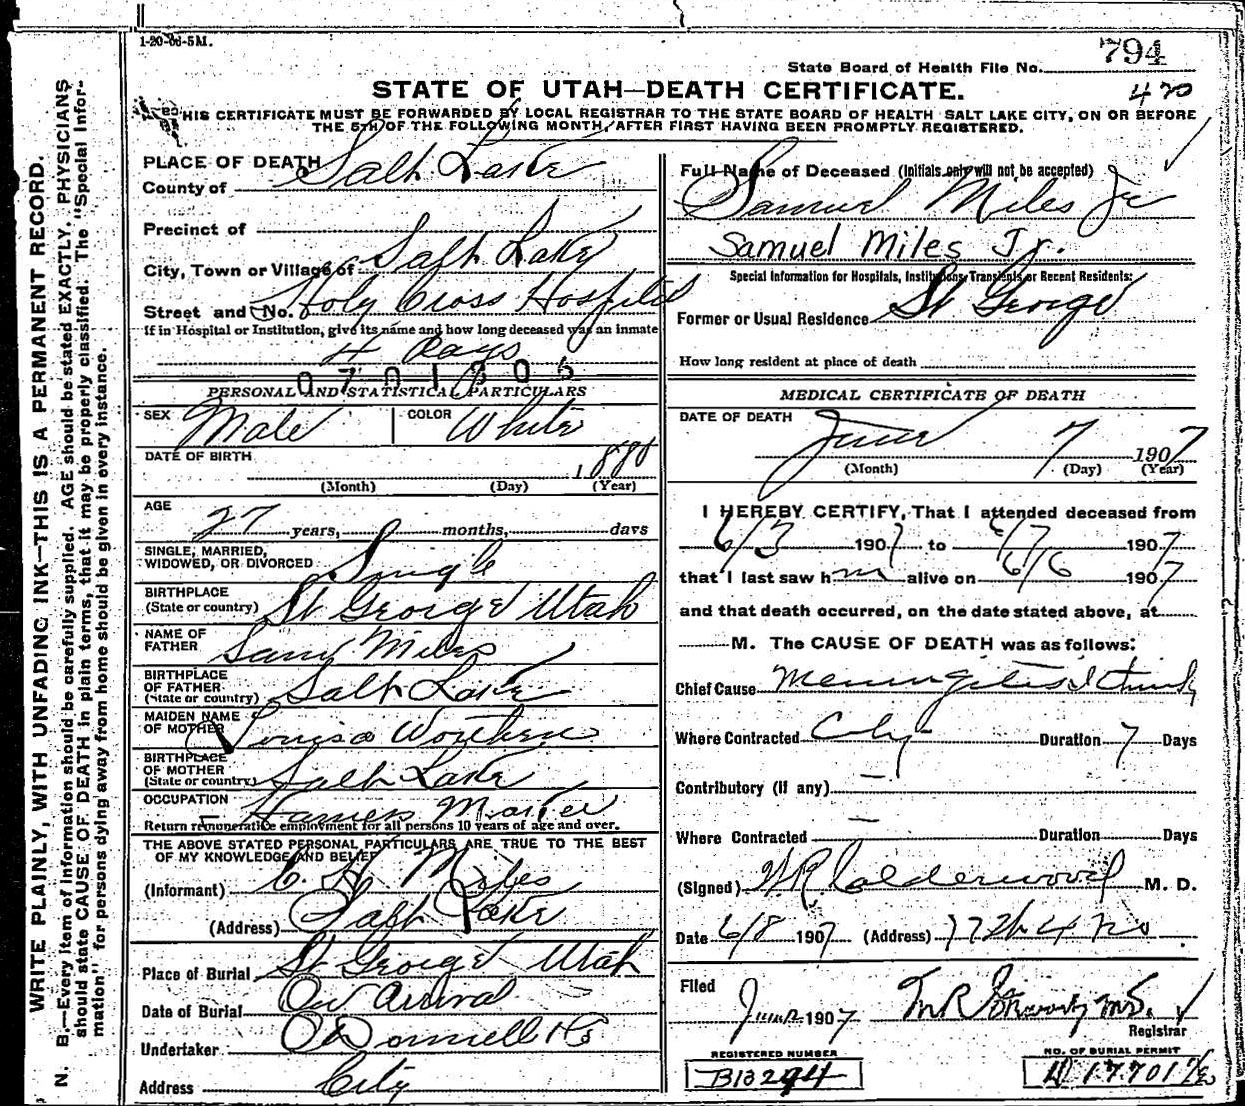 1-20-06-5M.
State Board of Health File No. 794
STATE OF UTAH—DEATH CERTIFICATE.
420
THIS CERTIFICATE MUST BE FORWARDED BY LOCAL REGISTRAR TO THE STATE BOARD OF HEALTH SALT LAKE CITY, ON OR BEFORE
THE 5TH OF THE FOLLOWING MONTH, AFTER FIRST HAVING BEEN PROMPTLY REGISTERED.
WRITE PLAINLY, WITH UNFADING INK—THIS IS A PERMANENT RECORD.
N. B.—Every item of information should be carefully supplied. AGE should be stated EXACTLY. PHYSICIANS
should state CAUSE OF DEATH in plain terms, that it may be properly classified. The "Special Infor-
mation" for persons dying away from home should be given in every instance.
PLACE OF DEATH
County of Salt Lake
Precinct of
City, Town or Village of Salt Lake
Street and No. Holy Cross Hospital
If in Hospital or Institution, give its name and how long deceased was an inmate
4 Days
0701806
PERSONAL AND STATISTICAL PARTICULARS
SEX Male COLOR White
DATE OF BIRTH 1880
(Month) (Day) (Year)
AGE
27 years, months, days
SINGLE, MARRIED,
WIDOWED, OR DIVORCED Single
BIRTHPLACE
(State or country) St George Utah
NAME OF
FATHER Saml Miles
BIRTHPLACE
OF FATHER
(State or country) Salt Lake
MAIDEN NAME
OF MOTHER Louisa Worthen
BIRTHPLACE
OF MOTHER
(State or country) Salt Lake
OCCUPATION Harness Maker
Return remunerative employment for all persons 10 years of age and over.
THE ABOVE STATED PERSONAL PARTICULARS ARE TRUE TO THE BEST
OF MY KNOWLEDGE AND BELIEF
(Informant) Miles
(Address) Salt Lake
Place of Burial St George Utah
Date of Burial On Arrival
Undertaker O'Donnell & Co
Address City
Full Name of Deceased (Initials only will not be accepted)
Samuel Miles Jr
Samuel Miles Jr.
Special Information for Hospitals, Institutions, Transients or Recent Residents:
Former or Usual Residence St George
How long resident at place of death
MEDICAL CERTIFICATE OF DEATH
DATE OF DEATH
June 7 1907
(Month) (Day) (Year)
I HEREBY CERTIFY, That I attended deceased from
6/3 1907 to 6/7 1907
that I last saw him alive on 6/6 1907
and that death occurred, on the date stated above, at
M. The CAUSE OF DEATH was as follows:
Chief Cause Meningitis I think
Where Contracted City Duration 7 Days
Contributory (if any) —
Where Contracted — Duration Days
(Signed) W R Calderwood M. D.
Date 6/8 1907 (Address)
Filed
June 1907
Registrar
REGISTERED NUMBER
B13294
NO. OF BURIAL PERMIT
17701